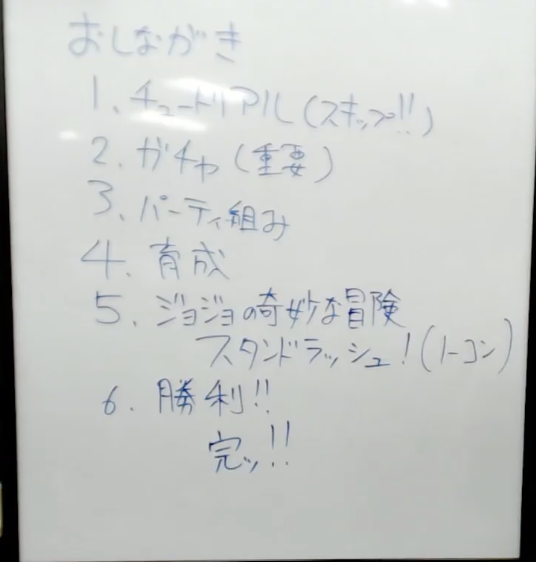 おしながき
1. チュートリアル(スキップ!!)
2. ガチャ(重要)
3. パーティ組み
4. 育成
5. ジョジョの奇妙な冒険
スタンドラッシュ!(ノーコン)
6. 勝利!!
完ッ!!